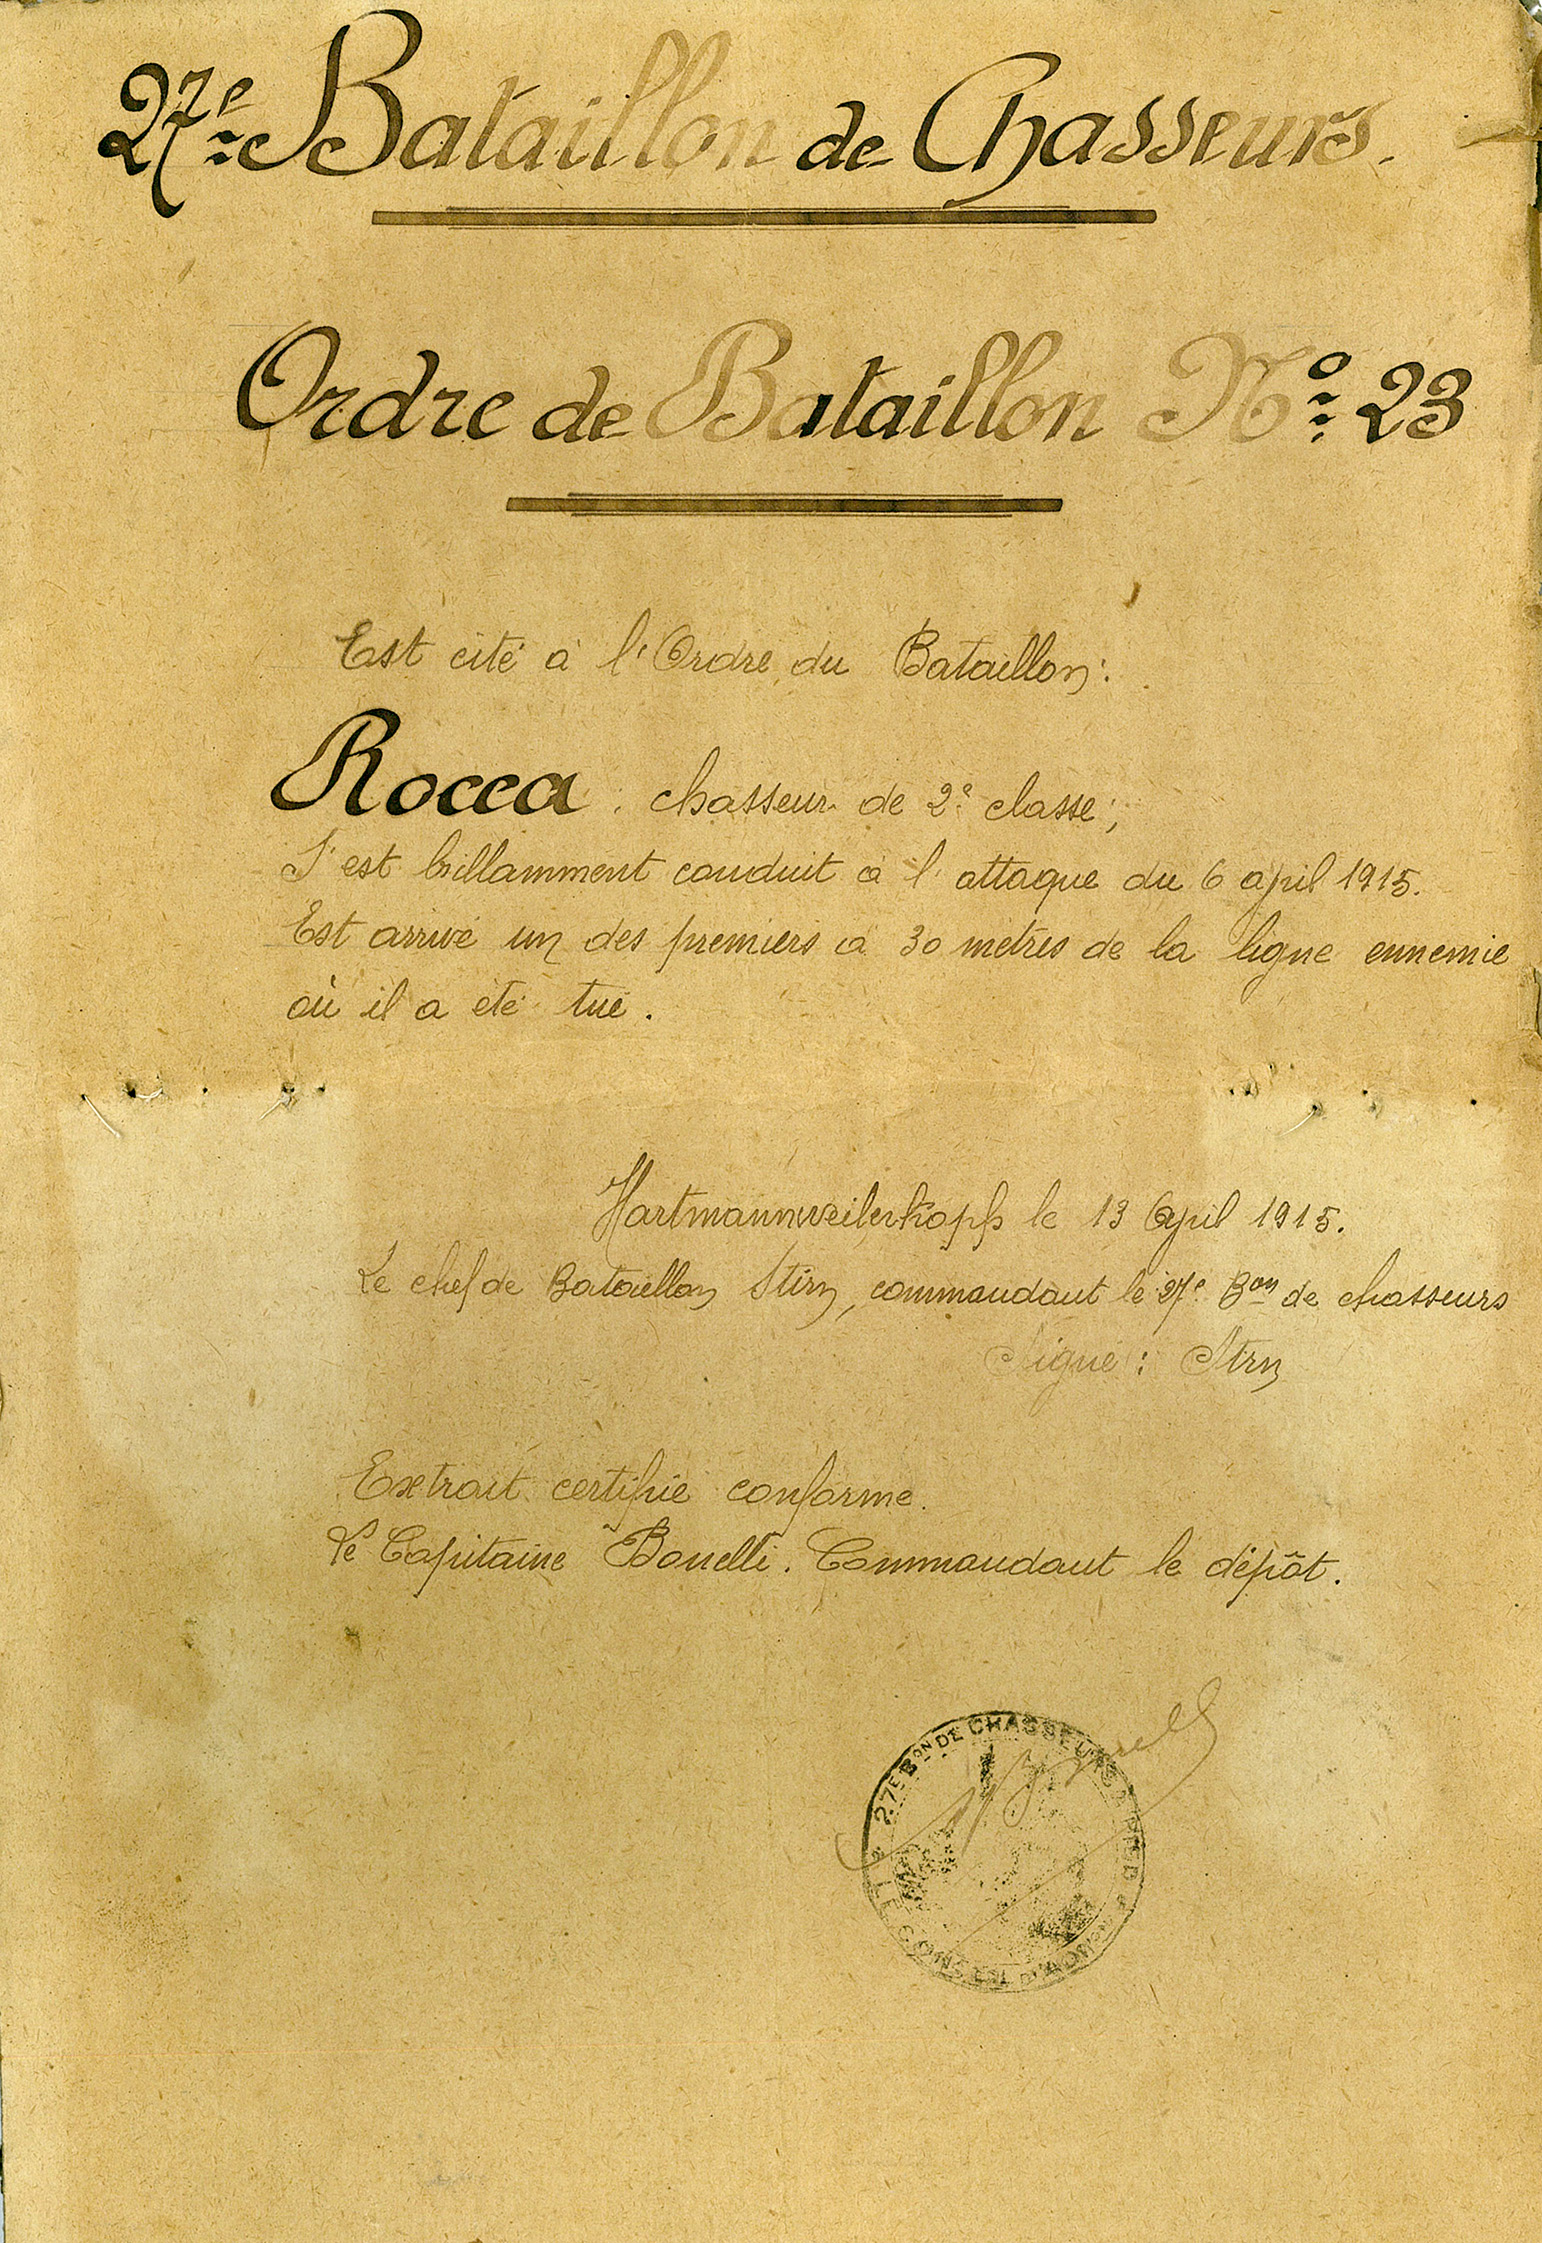 27e Bataillon de Chasseurs.
Ordre de Bataillon No 23
Est cité à l'Ordre du Bataillon:
Rocca : chasseur de 2e classe;
S'est brillamment conduit à l'attaque du 6 april 1915.
Est arrivé un des premiers à 30 mètres de la ligne ennemie
où il a été tué.
Hartmannweilerkopfs le 13 April 1915.
Le chef de Bataillon Stirn, commandant le 27e Bon de chasseurs
Signé : Stirn
Extrait certifié conforme.
Le Capitaine Bonelli. Commandant le dépôt.
27E BON DE CHASSEURS A PIED
LE CONSEIL D'ADMON